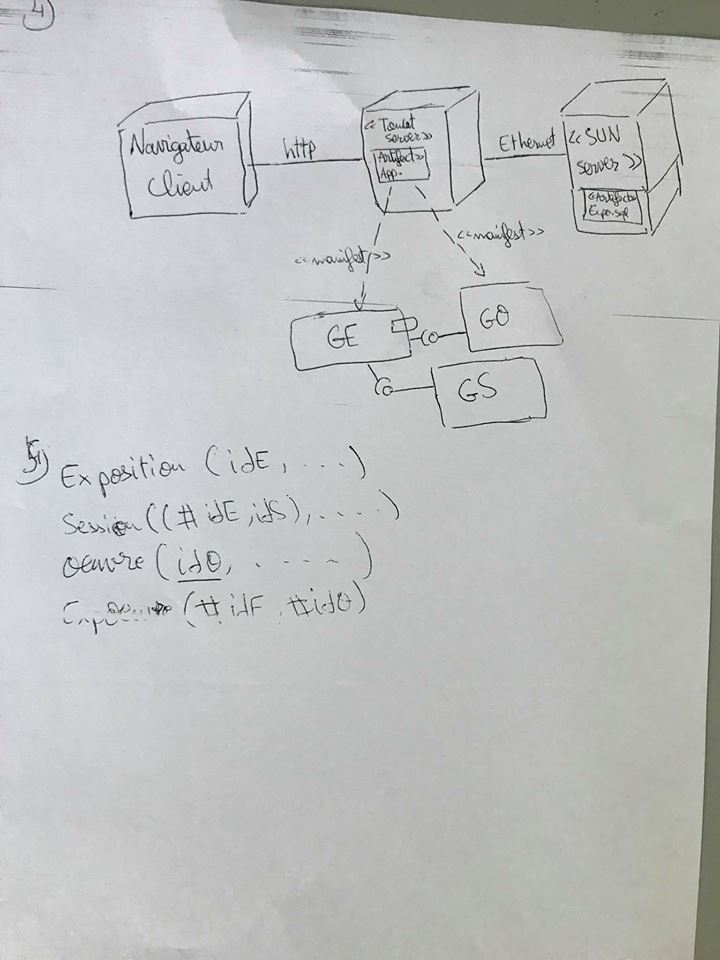 4)
Navigateur
Client
http
<< Tomcat
server >>
<<Artifact>>
App.
Ethernet
<< SUN
server >>
<<Artefact>>
Expo.sql
<<manifest>>
<<manifest>>
GE
GO
GS
5)
Exposition (idE, ...)
Session((#idE, idS), ....)
Oeuvre (idO, ......)
(#idE, #idO)